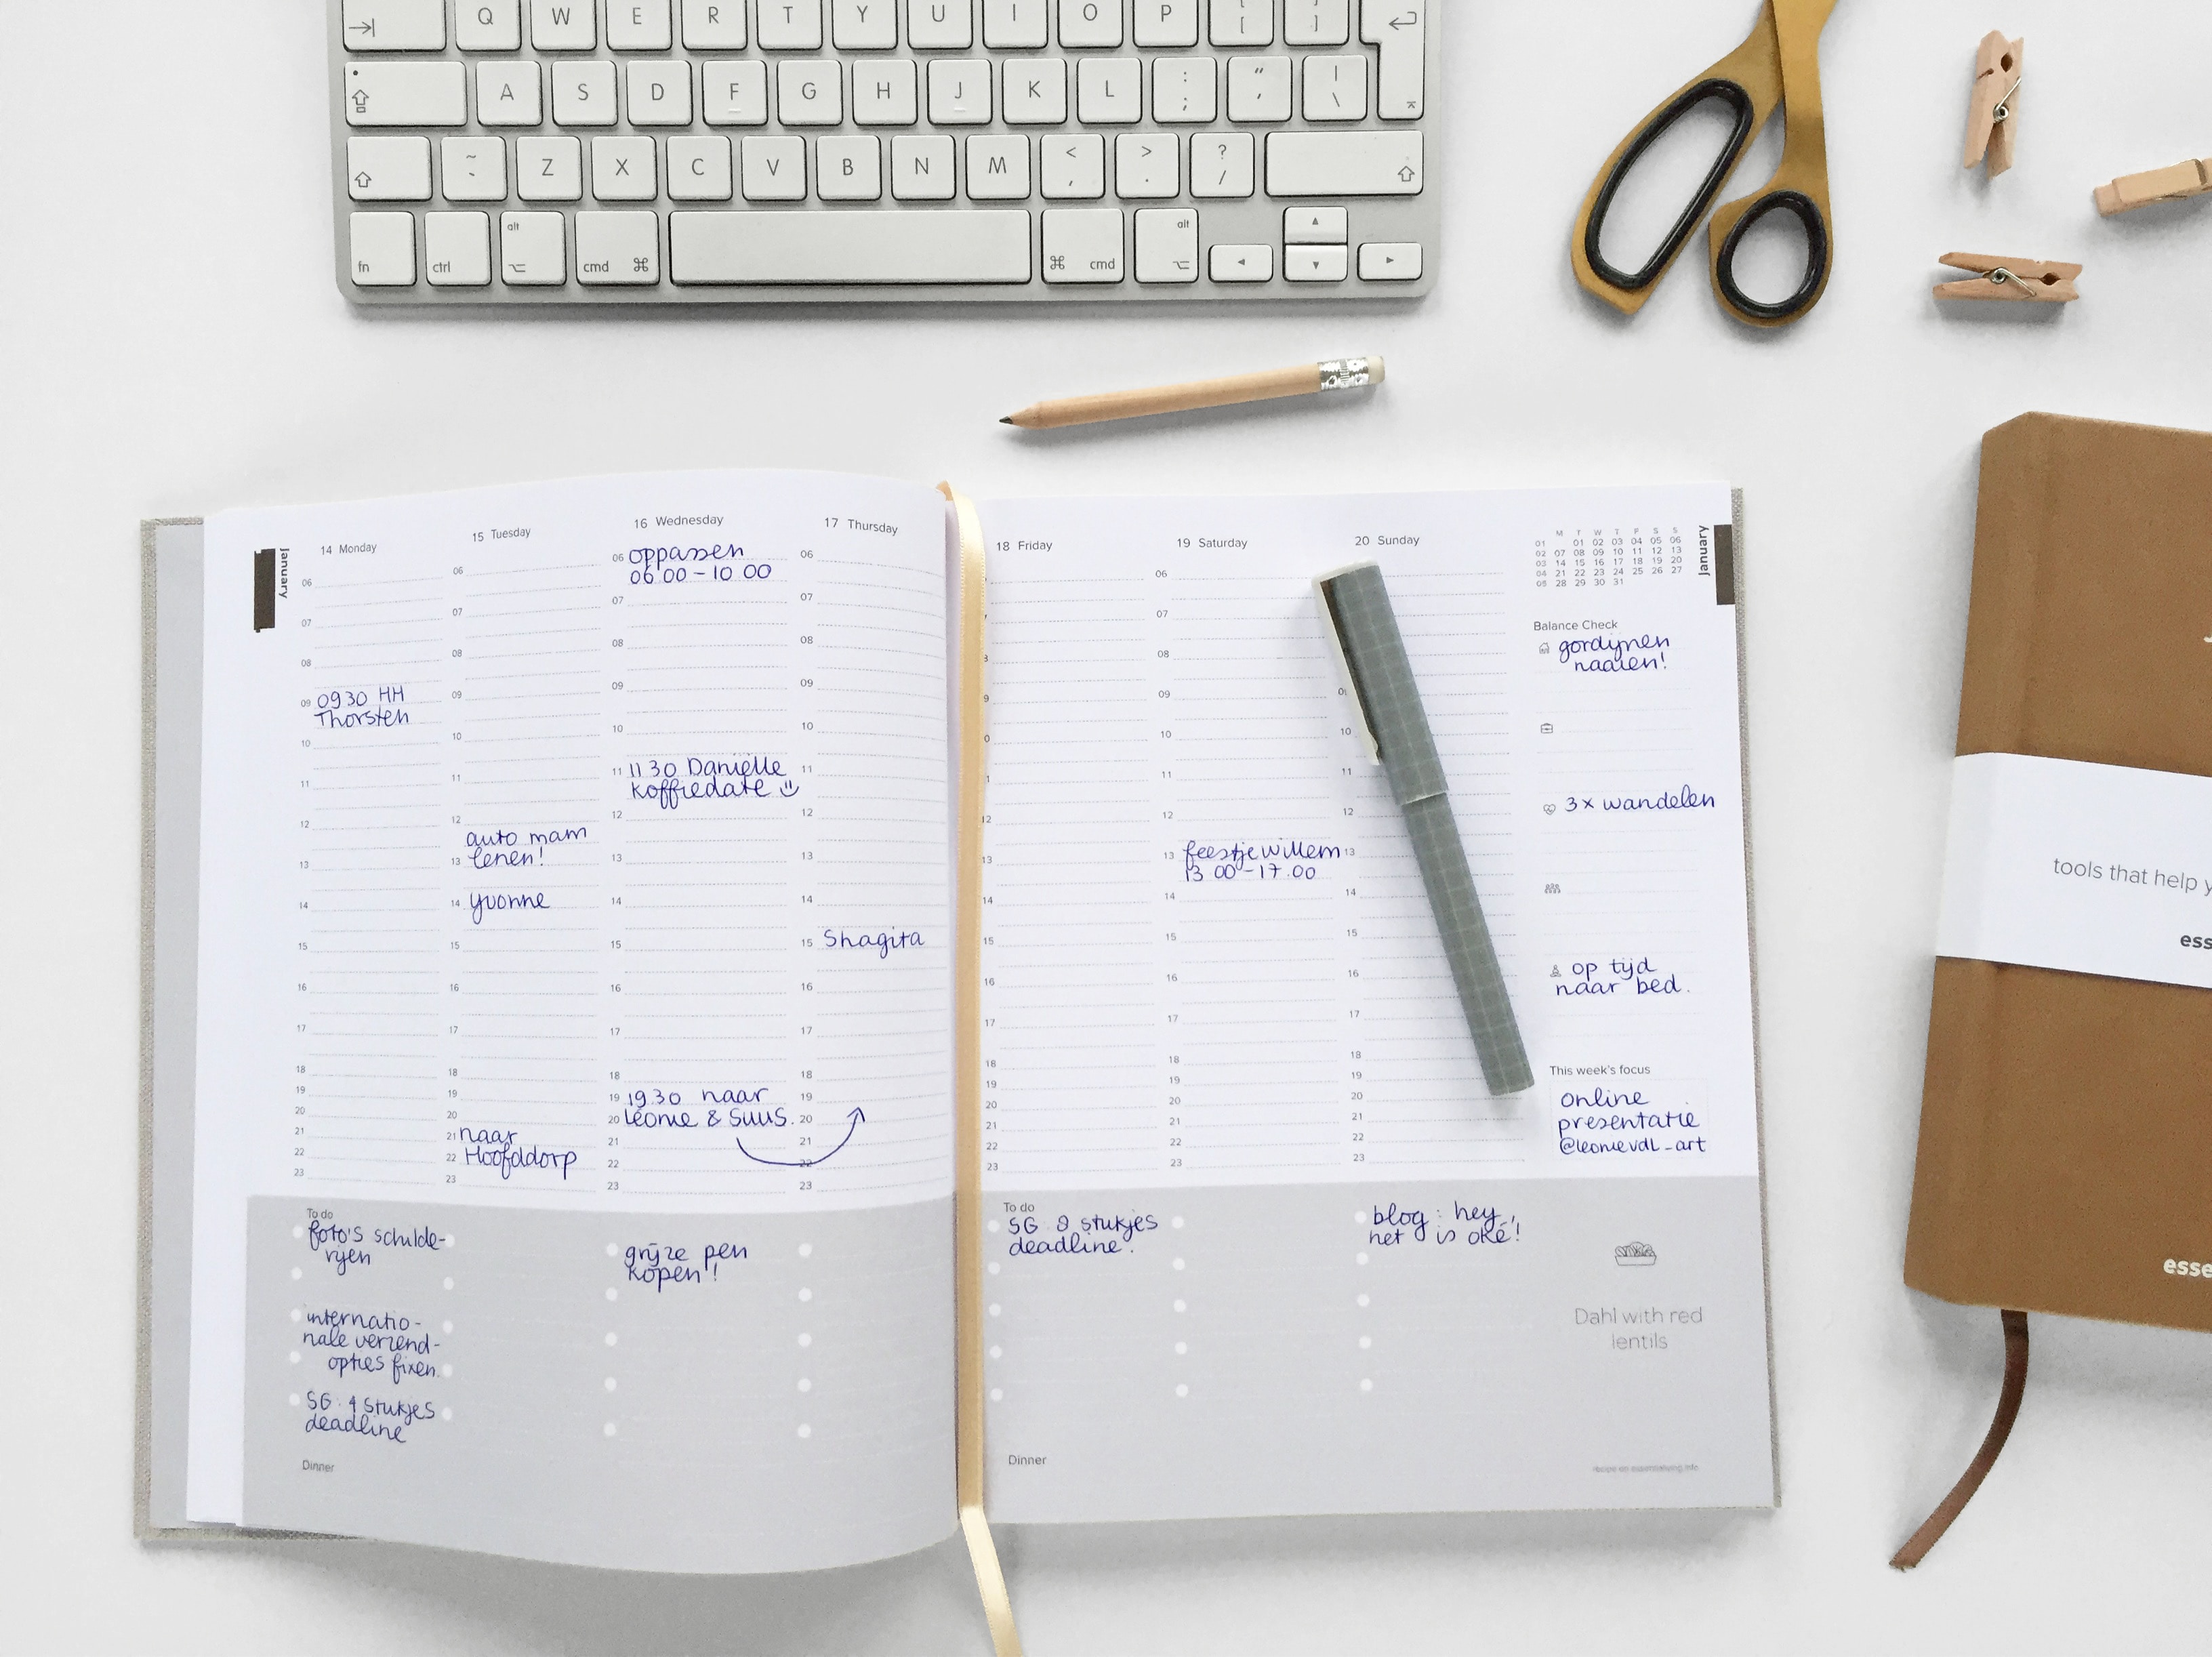 Q W E R T Y U I O P { [ } ]
A S D F G H J K L : ; " ' | \
~ ` Z X C V B N M < , > . ? /
fn ctrl alt cmd ⌘ ⌘ cmd alt
January
14 Monday
06
07
08
09 0930 HH
Thorsten
10
11
12
13
14
15
16
17
18
19
20
21
22
23
15 Tuesday
06
07
08
09
10
11
12
auto mam
13 lenen!
14 yvonne
15
16
17
18
19
20
21 naar
22 Hoofddorp
23
16 Wednesday
06 oppassen
06 00 - 10 00
07
08
09
10
11 11 30 Daniëlle
koffiedate
12
13
14
15
16
17
18
19 19.30 naar
20 Leonie & Suus.
21
22
23
17 Thursday
06
07
08
09
10
11
12
13
14
15 Shagita
16
17
18
19
20
21
22
23
To do
foto's schilde-
rijen
internatio-
nale verzend-
opties fixen.
SG. 4 stukjes
deadline
grijze pen
kopen!
Dinner
18 Friday
12
13
14
15
16
17
18
19
20
21
22
23
19 Saturday
06
07
08
09
10
11
12
13 feestje Willem
13 00 - 17.00
14
15
16
17
18
19
20
21
22
23
20 Sunday
10
11
12
13
14
15
16
17
18
19
20
21
22
23
M T W T F S S
01 01 02 03 04 05 06
02 07 08 09 10 11 12 13
03 14 15 16 17 18 19 20
04 21 22 23 24 25 26 27
05 28 29 30 31
January
Balance Check
gordijnen
naaien!
3x wandelen
op tijd
naar bed.
This week's focus
online
presentatie
@leonievdl_art
To do
SG stukjes
deadline.
blog: hey,
het is oké!
Dahl with red
lentils
Dinner
tools that help
ess
esse